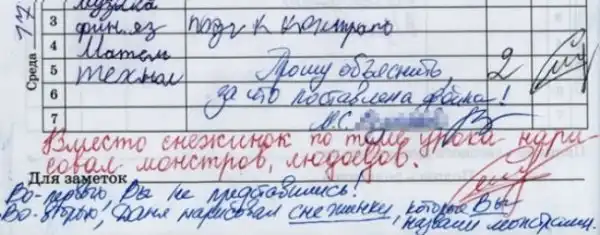 17
Среда
Музыка
3 фин. яз подг к контрало
4 Матем
5 технол Прошу объяснить, 2
6 за что поставлена двойка!
7 М.С.
Вместо снежинок по теме урока нари
совал монстров, людоедов.
Для заметок
Во-первых, Вы не представились!
Во-вторых, Даня нарисовал снежинки, которые Вы
назвали монстрами.